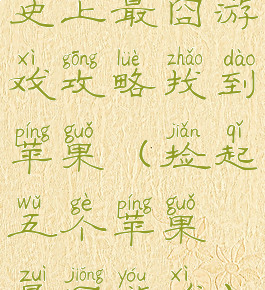 史上最囧游
xì gōng lüè zhǎo dào
戏攻略找到
píng guǒ jiǎn qǐ
苹果（捡起
wǔ gè píng guǒ
五个苹果
zuì jiǒng yóu xì